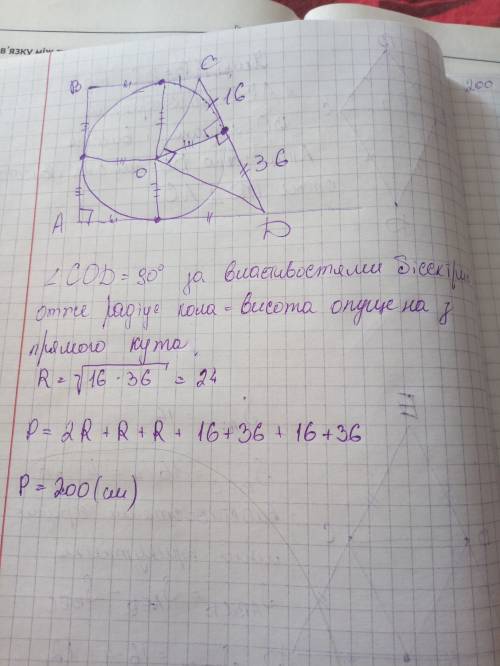 в'язку між
200
B
C
16
O
36
A
D
∠COD = 90° за властивостями бісектрис
отже радіус кола = висота опущена з
прямого кута.
R = √16 · 36 = 24
P = 2R + R + R + 16 + 36 + 16 + 36
P = 200 (см)